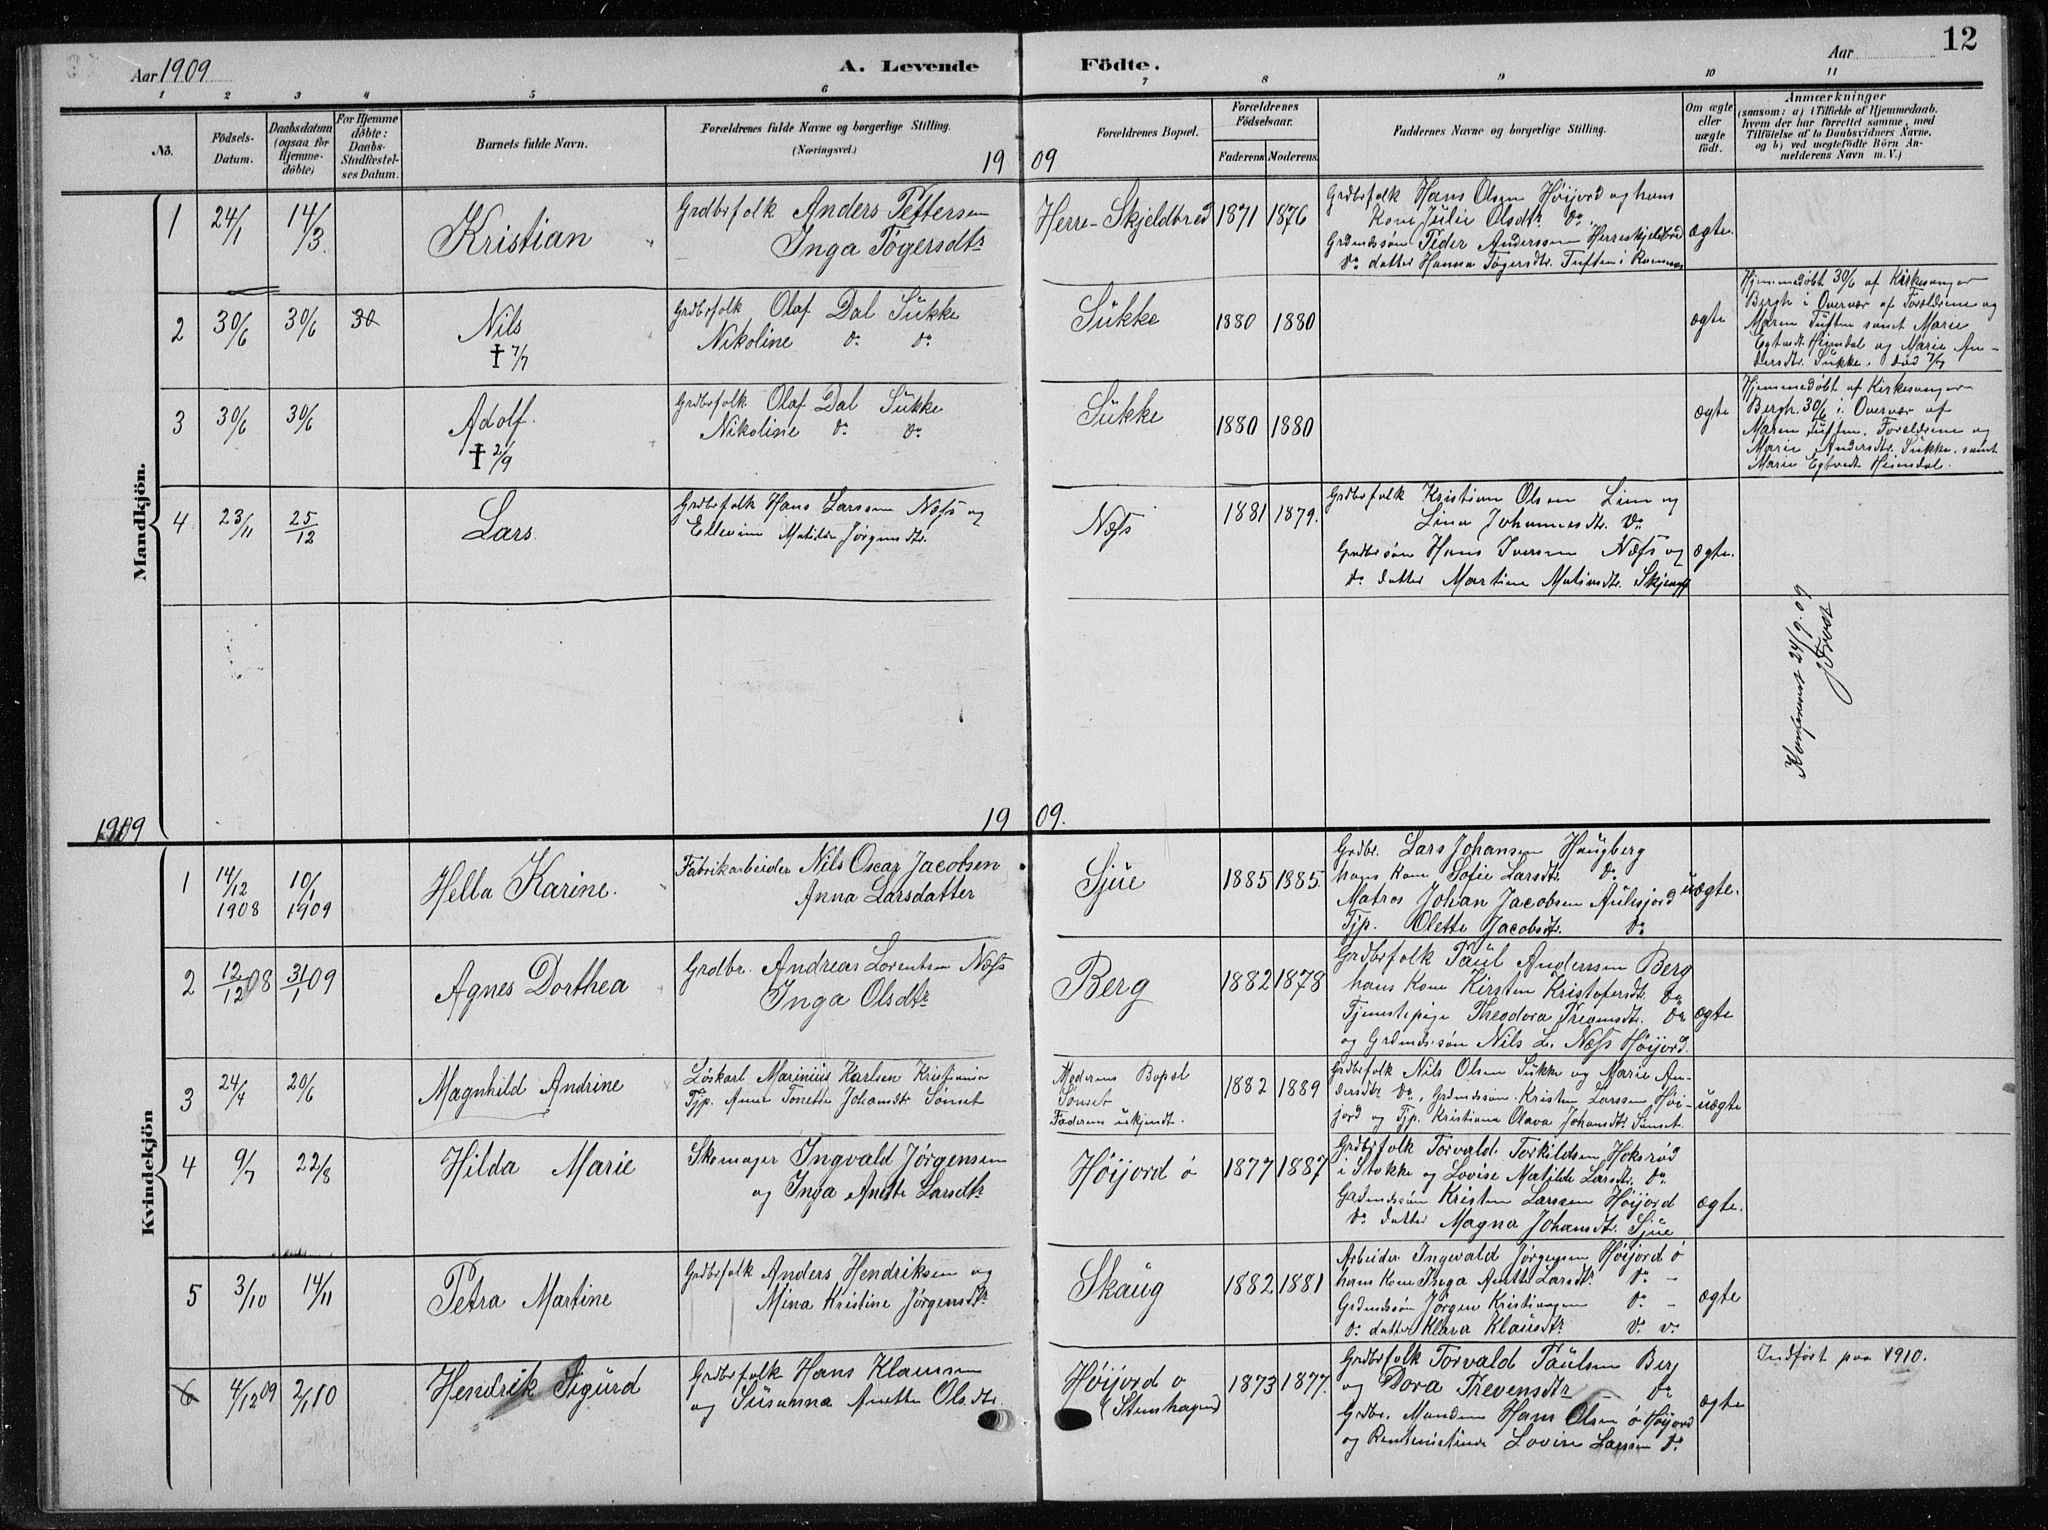 12
Aar 1909
A. Levende Födte.
Aar
1 2 3 4 5 6 7 8 9 10 11
No.
Födsels-Datum.
Daabsdatum (ogsaa for Hjemme-döbte)
For Hjemme döbte: Daabs-Stadfæstel-ses Datum.
Barnets fulde Navn.
Forældrenes fulde Navne og borgerlige Stilling.
(Næringsvei.)
19 09
Forældrenes Bopæl.
Forældrenes Födselsaar.
Faderens Moderens.
Faddernes Navne og borgerlige Stilling.
Om ægte eller uægte födt.
Anmærkninger
(saasom: a) i Tilfælde af Hjemmedaab, hvem der har forrettet samme, med Tilföielse af to Daabsvidners Navne, og b) ved uægtefödte Börn Anmelderens Navn m. V.)
Mandkjön.
1 24/1 14/3 Kristian
Grdbrfolk Anders Pettersen
Inga Tøgersdtr
Herre-Skjeldbred 1871 1876
Grdbrfolk Hans Olsen Høijord og hans
Kone Julie Olsdtr do
Grdmdssøn Peder Anderssen Herreskjelbred
do datter Hanna Tøgersdtr. Tuften i Ramnes
ægte.
2 30/6 30/6 30 Nils
† 7/7
Grdbrfolk Olaf Dal Sukke
Nikoline do do
Sukke 1880 1880
ægte
Hjemmedøbt 30/6 af Kirkesanger
Bergh i Overvær af Forældrene og
Maren Tuften samt Marie
Egtvedt Heimdal og Marie An-
dersdtr. Sukke. død 7/7
3 30/6 30/6 Adolf.
† 2/9
Grdbrfolk Olaf Dal Sukke
Nikoline do do
Sukke 1880 1880
ægte
Hjemmedøbt af Kirkesanger
Bergh 30/6 i Overvær af
Maren Tuften, Forældrene og
Marie Andersdtr. Sukke, samt
Marie Egtvedt Heimdal.
4 23/11 25/12 Lars
Grdbrfolk Hans Larssen Næss og
Ellevine Matilde Jørgensdtr.
Næss 1881 1879.
Grdbrfolk Kristian Olsen Lien og
Lina Johannesdtr. do
Grdbr søn Hans Iversen Næss og
do datter Martine Matisdtr.
ægte.
Konfereret 24/9. 09
JFrost
1909 19 09.
Kvindekjön
1 14/12 1908 10/1 1909 Hella Karine.
Fabrikarbeider Nils Oscar Jacobsen
Anna Larsdatter
Sjue 1885 1885
Grdbr. Lars Johansen Haugberg
hans Kone Sofie Larsdtr. do
Matros Johan Jacobsen Aulesjord
Tjp. Olette Jacobsdtr. do
uægte.
2 12/12 08 31/1 09 Agnes Dorthea
Grdbr. Andreas Lorentsen Næss
Inga Olsdtr
Berg 1882 1878
Grdbrfolk Paul Anderssen Berg
hans Kone Kirsten Kristofersdtr. do
Tjenestepige Theodora Trevensdtr. do
og Grdmds.søn Nils L. Næss Høijord.
ægte
3 24/4 20/6 Magnhild Andrine
Løskarl Marinius Karlsen Kristiania
Tjp. Anna Tonette Johansdtr Sønset
Moderens Bopæl
Sønset
Faderens ukjendt.
1882 1889
Grdbrfolk Nils Olsen Sukke og Marie An-
dersdtr do, Grdmdssøn Kristen Larssen Høi-
jord og Tjp. Kristiana Olava Johansdtr Sønset.
uægte
4 9/7 22/8 Hilda Marie
Skomager Ingvald Jørgensen
og Inga Anette Larsdtr
Høijord ø 1877 1887
Grdbrfolk Torvald Torkildsen Hoksrød
i Stokke og Lovise Matilde Larsdtr. do
Grdmdssøn Kristen Larssen Høijord
do datter Magna Johansdtr. Sjue
ægte.
5 3/10 14/11 Petra Martine
Grdbrfolk Anders Hendriksen og
Mina Kristine Jørgensdtr
Skaug 1882 1881
Arbeider Ingvald Jørgensen Høijord ø
hans Kone Inga Anette Larsdtr. do -
Grdmdssøn Jørgen Kristiansen do -
do datter Klara Klausdtr. do do
ægte
6 4/12 09 2/1 10 Hendrik Sigurd
Grdbrfolk Hans Klausen
og Susanna Anette Olsdtr.
Høijord ø
(Stenshagen)
1873 1877.
Grdbrfolk Torvald Paulsen Berg
og Dora Trevensdtr do
Grdbr. Manden Hans Olsen ø Høijord
og Rentenistinde Lovise Larssen do
ægte
Indført paa 1910.